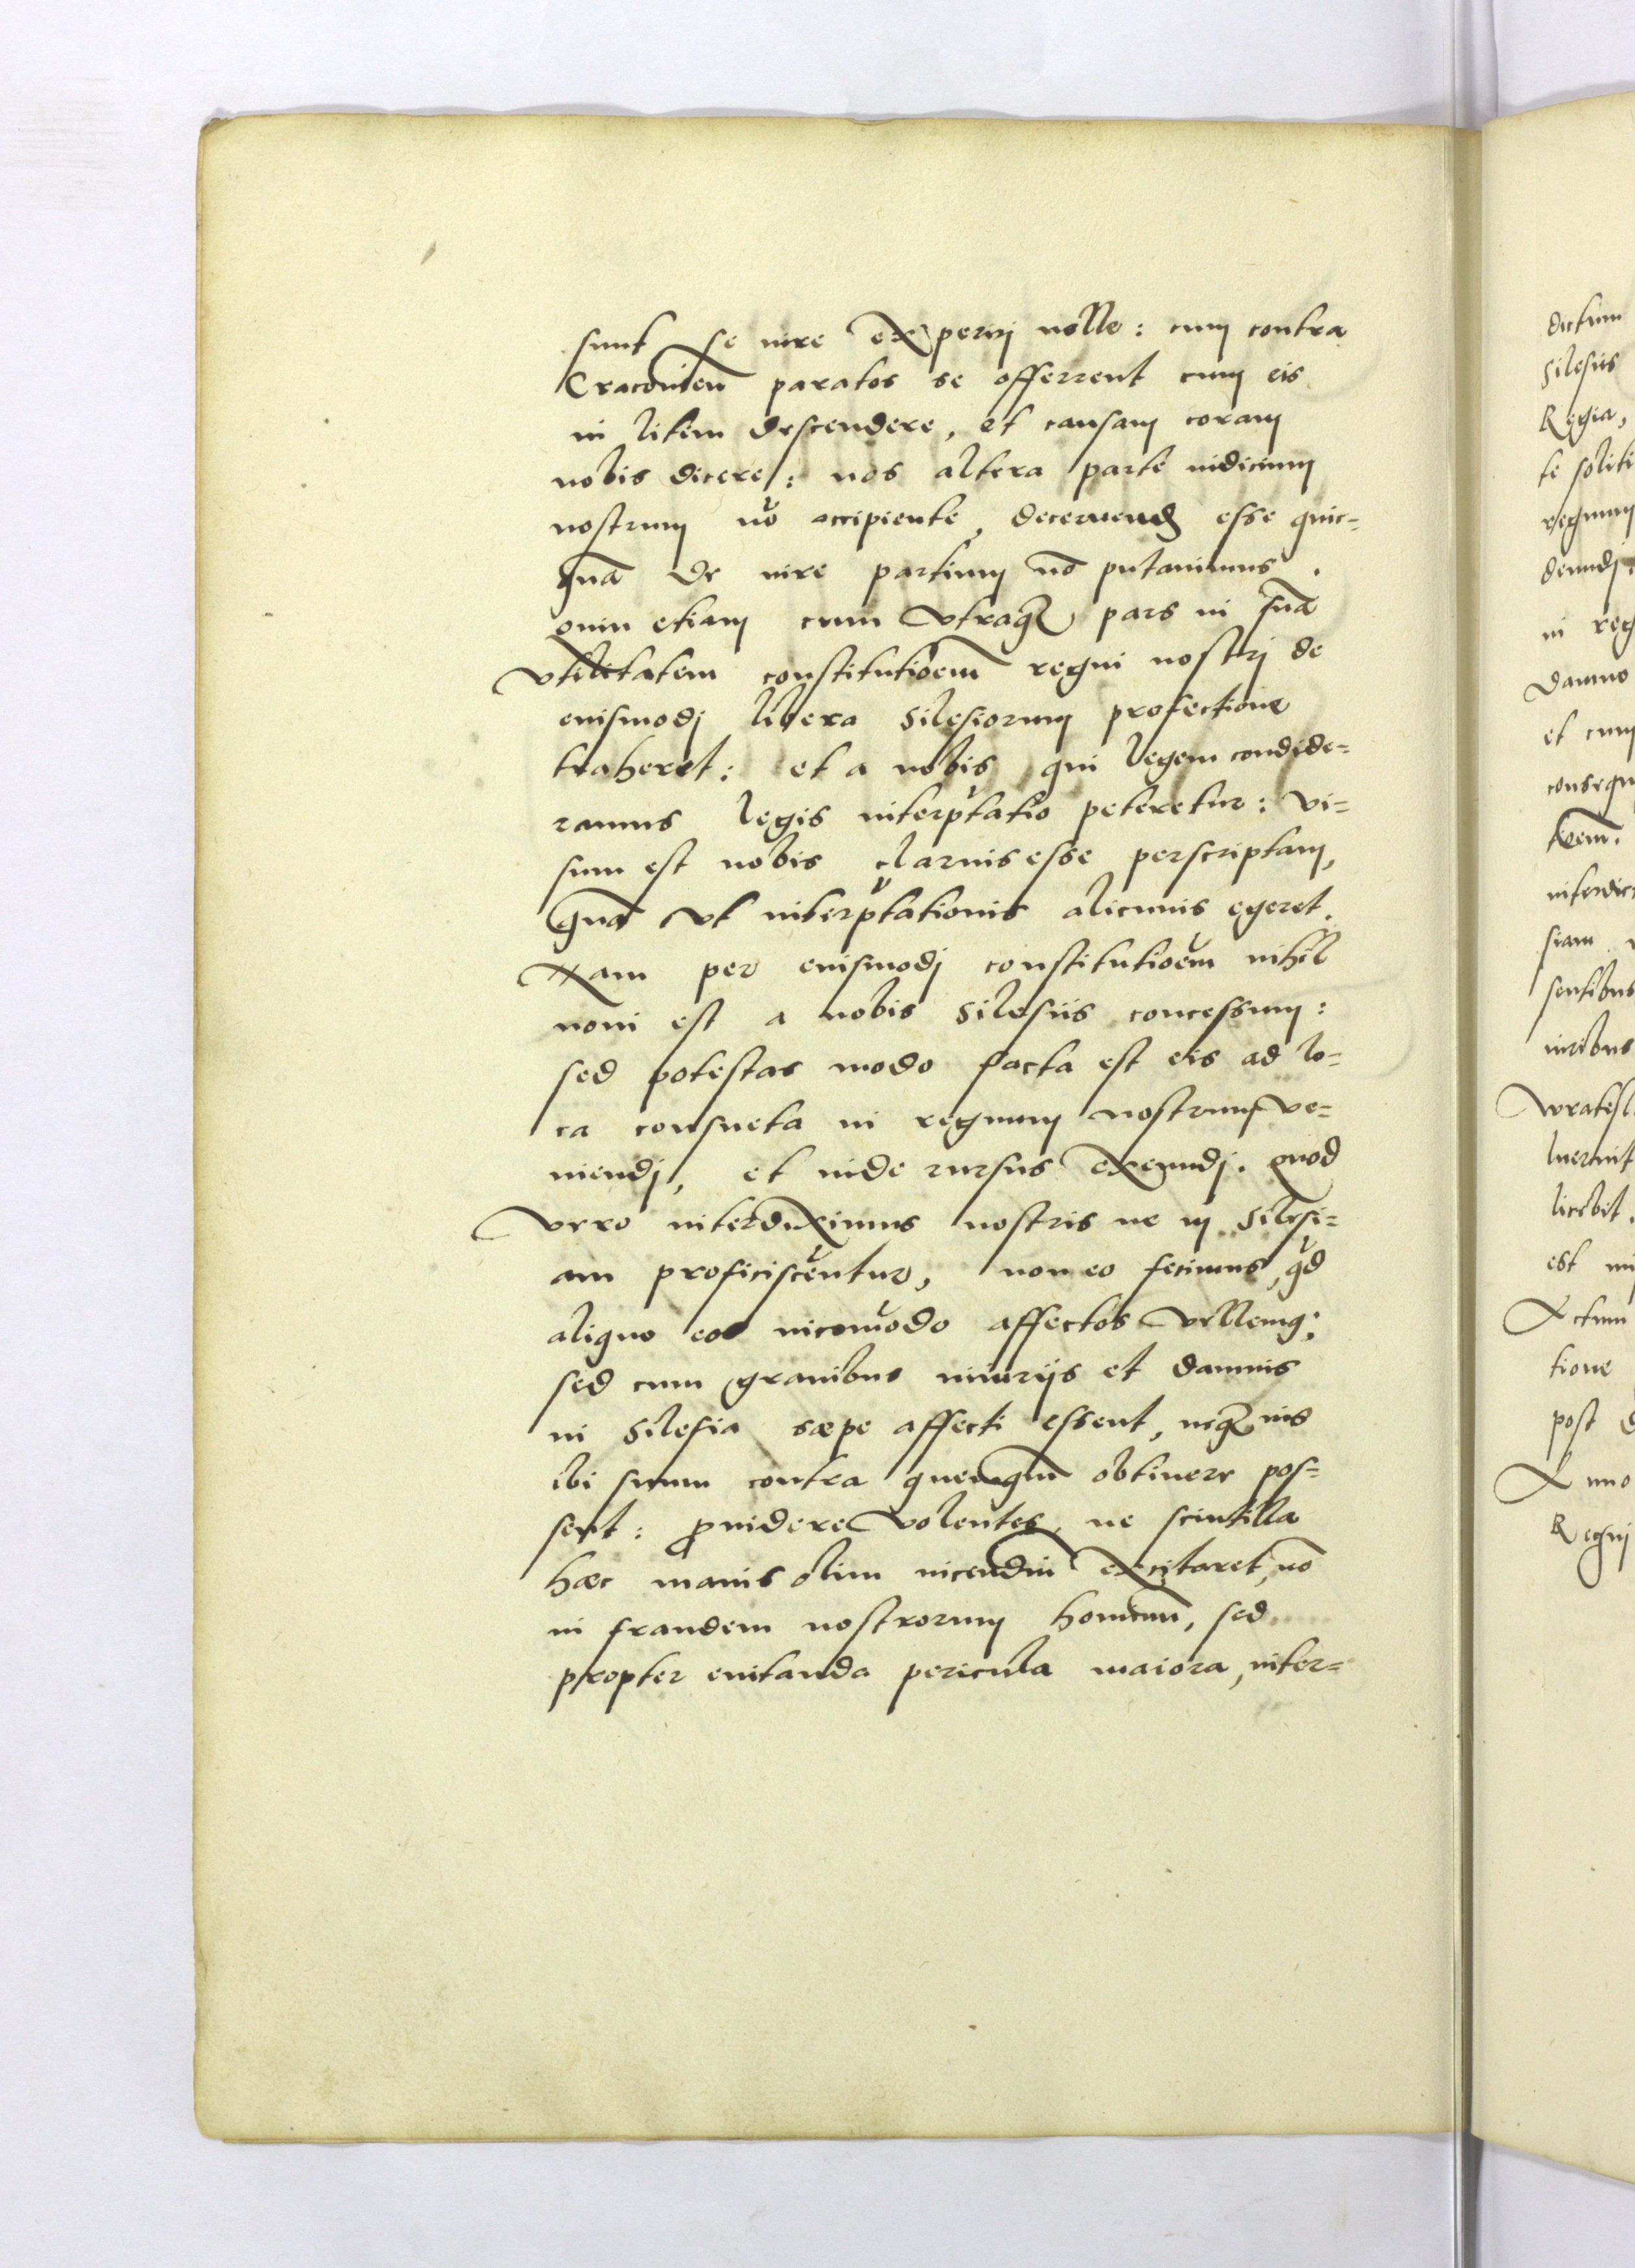 sunt se iure experirj nolle: cum contra
Cracouien̄ paratos se offerrent cum eis
in litem descendere, et causam coram
nobis dicere: nos altera parte iudicium
nostrum nō accipiente, decernend esse quic=
quā de iure partium nō putauimus.
quin etiam cum vtraq₃ pars in suā
vtilitatem constitutioēm regni nostrj de
euismodj libera Silesiorum profectione
traheret: et a nobis, qui legem condide=
ramus legis interp̄tatio peteretur: vi=
sum est nobis clarius esse perscriptam,
quā vt interp̄tationis alicuius egeret.
Nam per euismodj constitutioēm nihil
noui est a nobis Silesiis concessum:
sed potestas modo facta est eis ad lo=
ca consueta in regnum nostrum ve=
niendj, et inde rursus exeundj. quod
vero interduximus nostris ne in Silesi=
am proficiscēntur, non eo fecimus, qd̄
aliquo eos incom̄odo affectos vellem9:
sed cum grauibus iniurijs et damnis
in Silesia sæpe affecti essent, neq₃ ius
ibi suum contra quenqm̄ obtinere pos=
sent: ꝓuidere volentes, ne scintilla
hæc maius olim incendiū excitaret, nō
in fraudem nostrorum hominū, sed
propter euitanda pericula maiora, inter=
dictum
Silesiis
Regia,
te soliti
regnum
deundj.
in reg
damno
et cum
consequ
tioem.
interdic
siam
sentibus
iuribus
Wratisl
luerint
licebit.
est
Actum
tione
post
Anno
Regnj